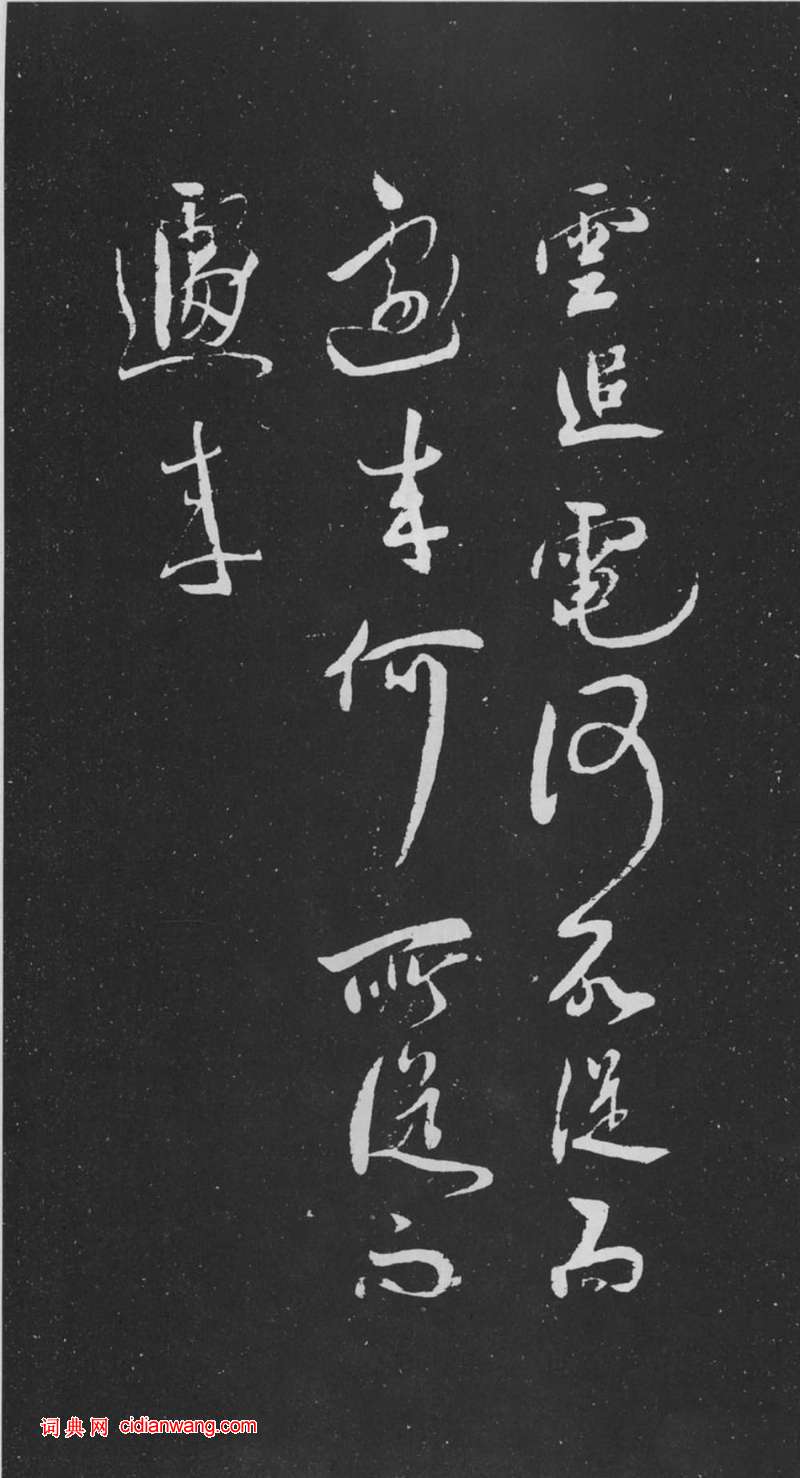 雲追電何所從而
遽来何所從而
遽来
词典网 cidianwang.com